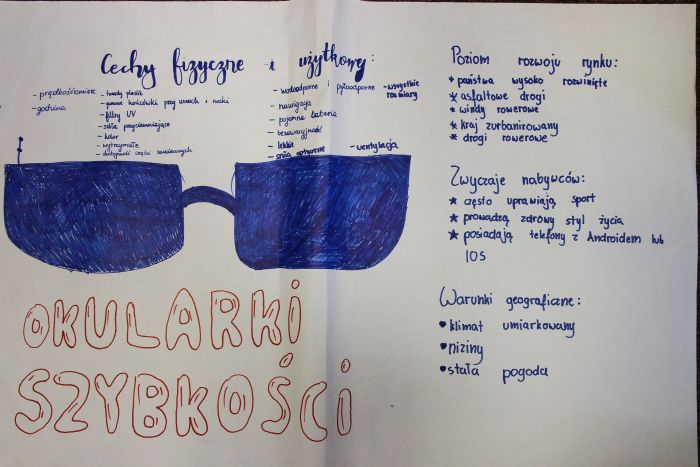 Cechy fizyczne i użytkowe:
- prędkościomierz
- godzina
- twardy plastik
- gumowe końcówki przy uszach i nosku
- filtry UV
- szkła przyciemniające
- kolor
- wytrzymałe
- dostępność części zamiennych
- wodoodporne i pyłoodporne
- nawigacja
- pojemna bateria
- bezawaryjność
- lekkie
- szkła optyczne
- wszystkie rozmiary
- wentylacja
OKULARKI
SZYBKOŚCI
Poziom rozwoju rynku:
* państwa wysoko rozwinięte
* asfaltowe drogi
* windy rowerowe
* kraj zurbanizowany
* drogi rowerowe
Zwyczaje nabywców:
* często uprawiają sport
* prowadzą zdrowy styl życia
* posiadają telefony z Androidem lub
IOS
Warunki geograficzne:
• klimat umiarkowany
• niziny
• stała pogoda